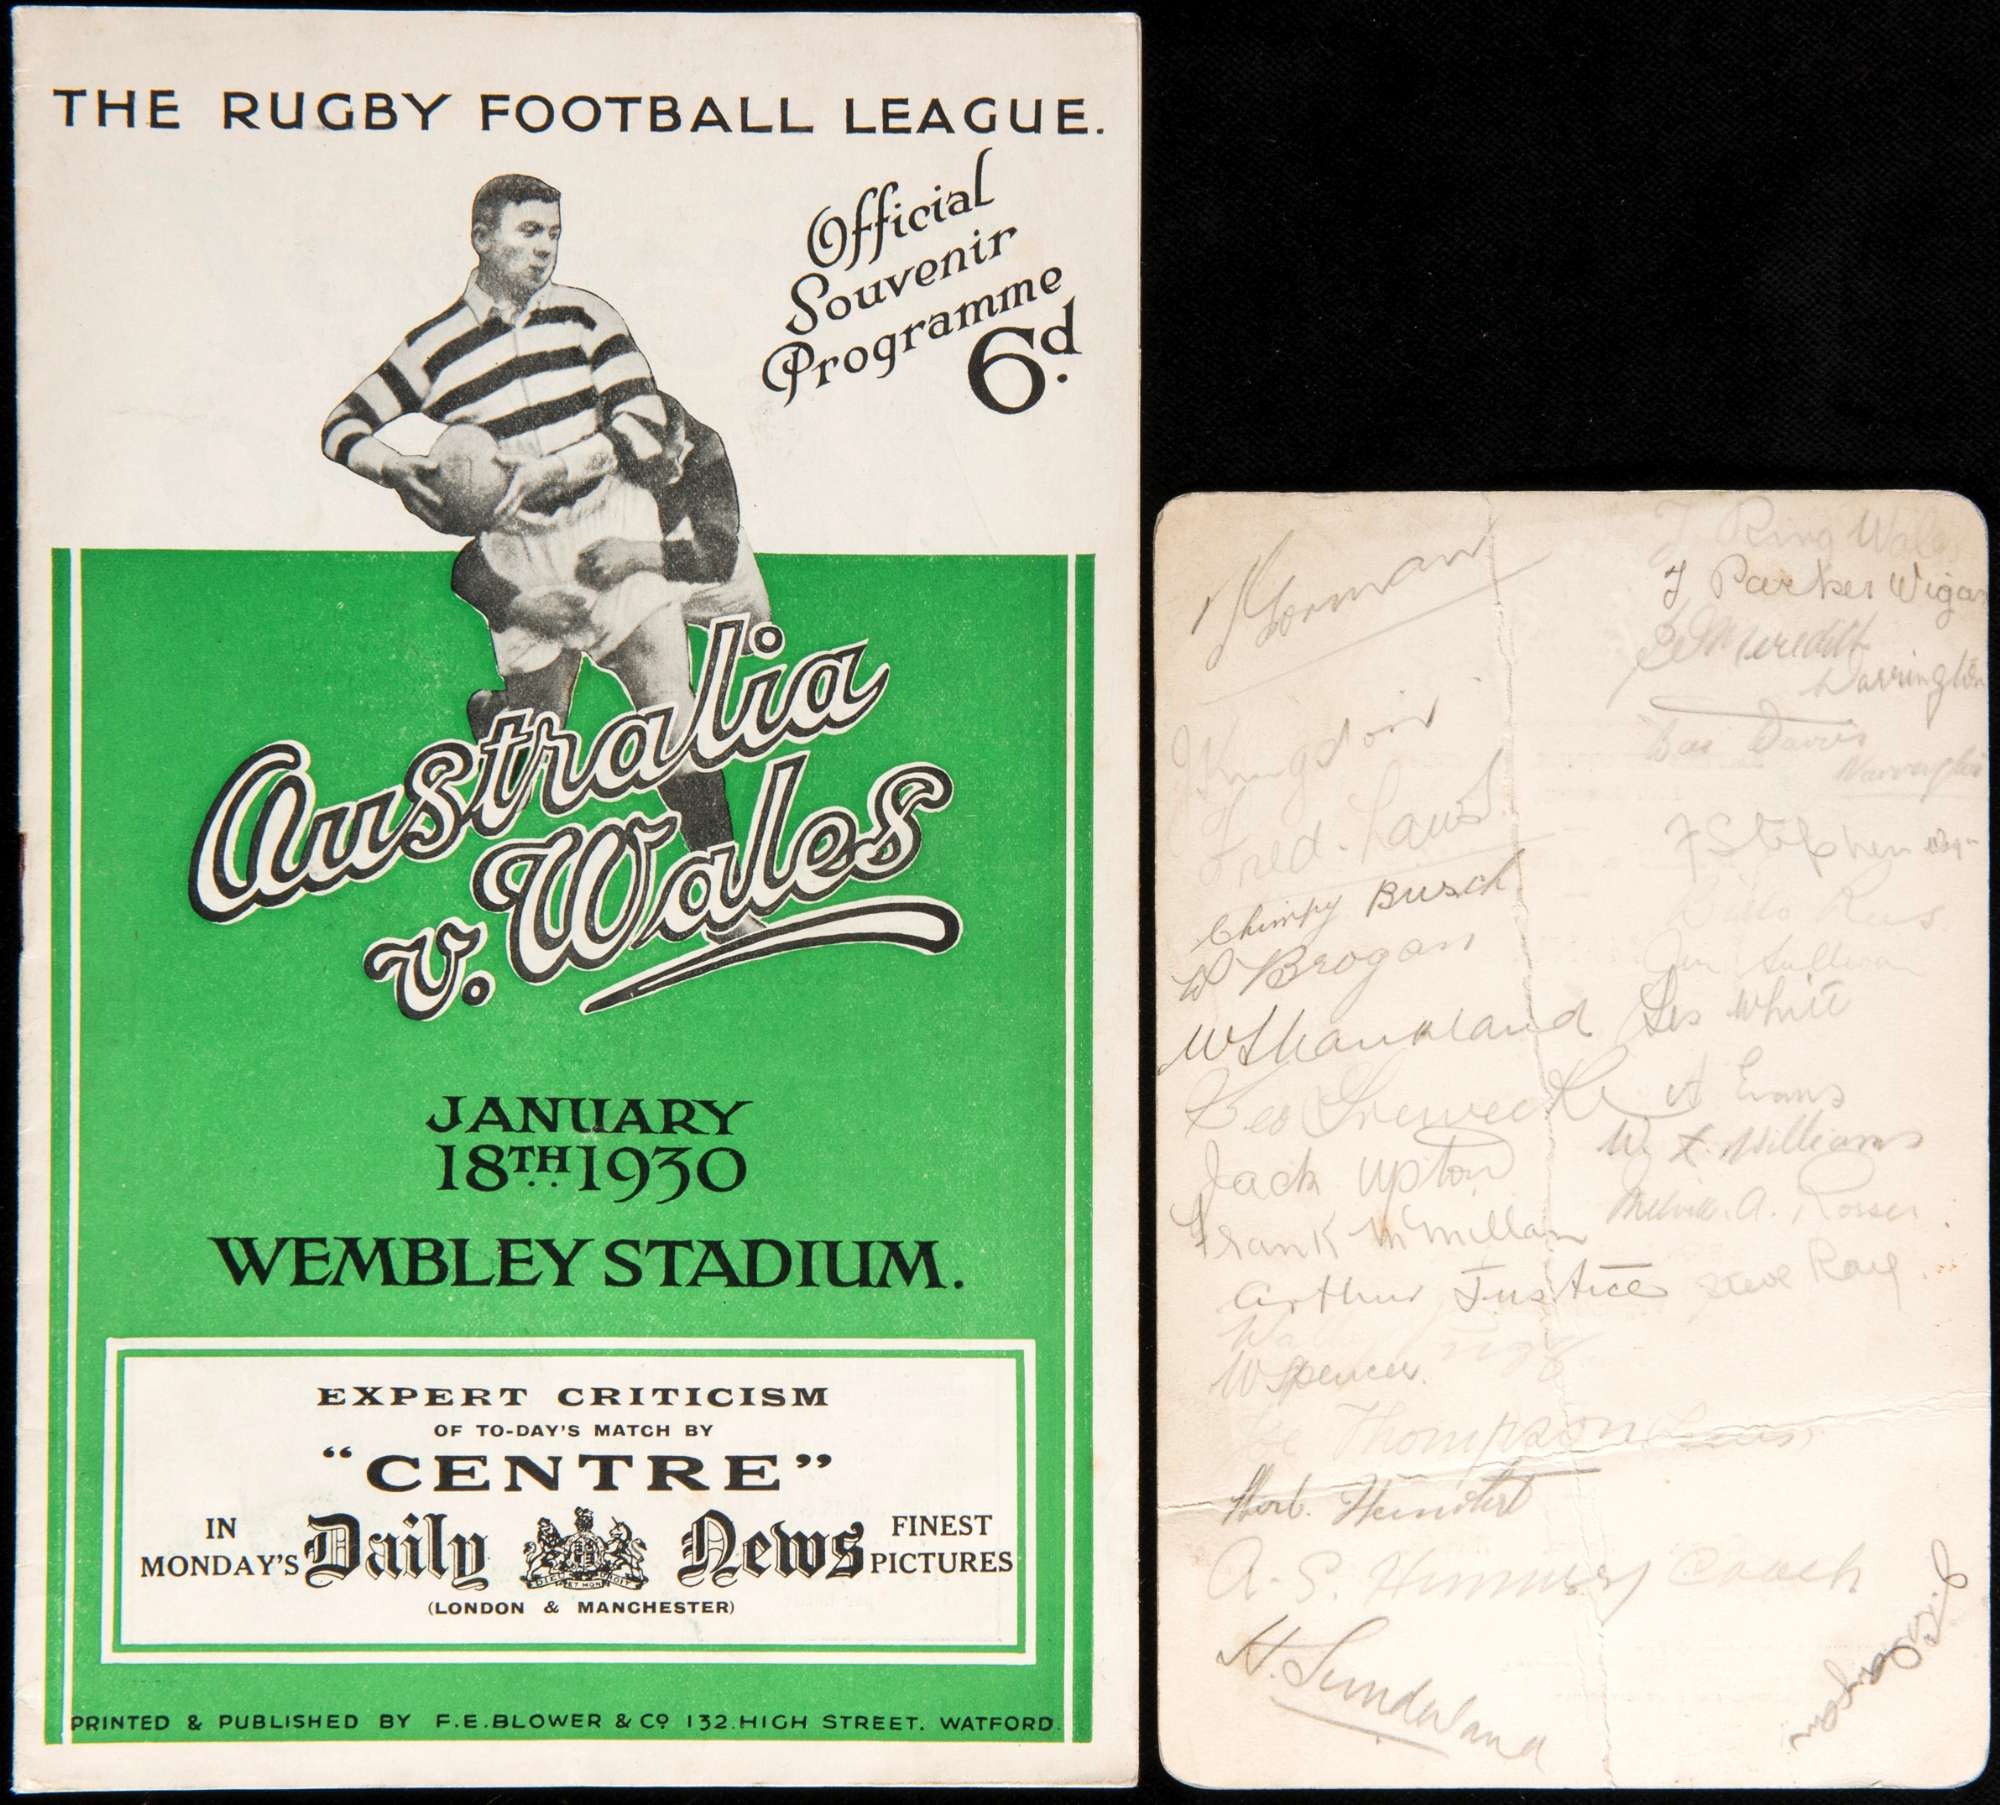 THE RUGBY FOOTBALL LEAGUE.
Official
Souvenir
Programme
6d.
Australia
v. Wales
JANUARY
18TH 1930
WEMBLEY STADIUM.
EXPERT CRITICISM
OF TO-DAY'S MATCH BY
"CENTRE"
IN
MONDAY'S
Daily News
FINEST
PICTURES
(LONDON & MANCHESTER)
PRINTED & PUBLISHED BY F.E.BLOWER & CO 132.HIGH STREET. WATFORD.
J Kingston
Fred. Laws.
Chimpy Busch
W Brogan
W Shankland
Geo Treweeke
Jack Upton
Frank McMillan
Arthur Justice
W Spencer.
Thompson
A S. Hennessy Coach
H. Sunderland
J Ring Wales
J Parker Wigan
Meredith
Warrington
Davies
Warrington
F Stephen Wigan
Billo Rees
Jim Sullivan
Les White
A Evans
W. Williams
Melville. A. Rosser
Steve Ray